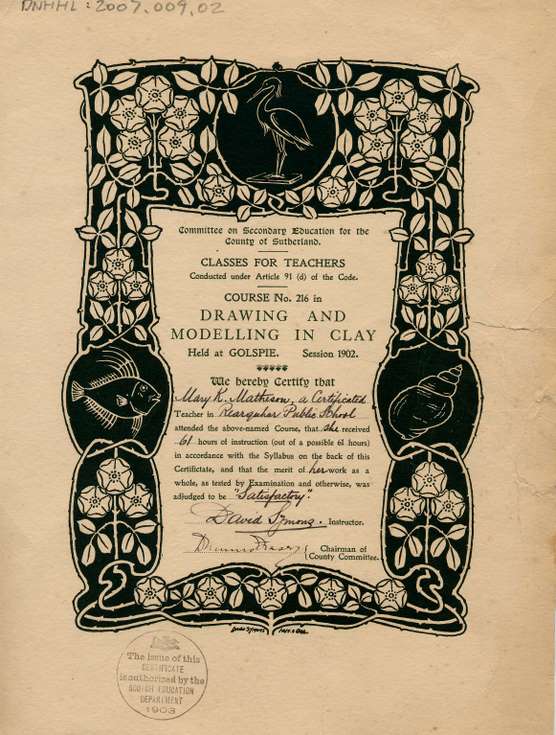 DNHHL : 2007.009.02
Committee on Secondary Education for the
County of Sutherland.
CLASSES FOR TEACHERS
Conducted under Article 91 (d) of the Code.
COURSE No. 216 in
DRAWING AND
MODELLING IN CLAY
Held at GOLSPIE. Session 1902.
We hereby Certify that
Mary K. Matheson, a Certificated
Teacher in Rearquhar Public School
attended the above-named Course, that she received
61 hours of instruction (out of a possible 61 hours)
in accordance with the Syllabus on the back of this
Certificate, and that the merit of her work as a
whole, as tested by Examination and otherwise, was
adjudged to be "Satisfactory".
David Symons. Instructor.
Chairman of
County Committee.
The issue of this
CERTIFICATE
is authorized by the
SCOTCH EDUCATION
DEPARTMENT
1903